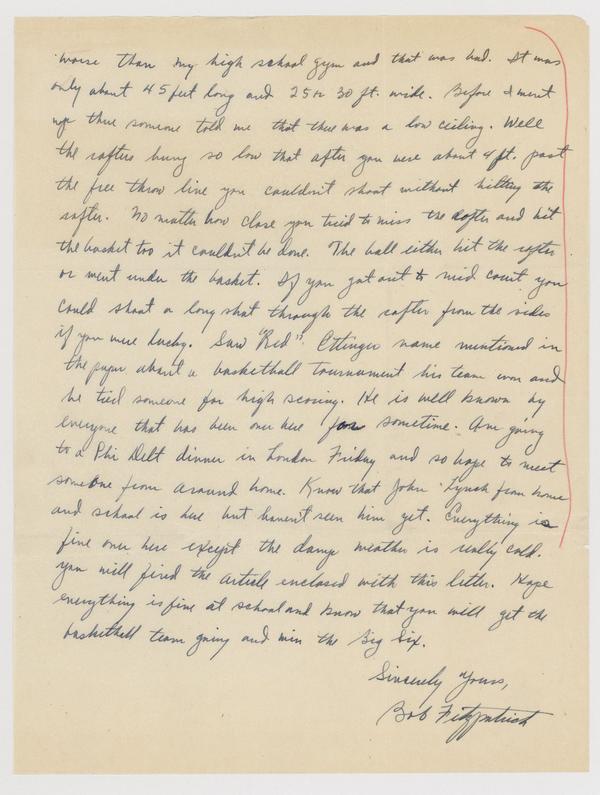 worse than my high school gym and that was bad. It was
only about 45 feet long and 25 or 30 ft. wide. Before I went
up there someone told me that there was a low ceiling. Well
the rafters hung so low that after you were about 4 ft. past
the free throw line you couldn't shoot without hitting the
rafter. No matter how close you tried to miss the rafter and hit
the basket too it couldn't be done. The ball either hit the rafter
or went under the basket. If you got out to mid court you
could shoot a long shot through the rafter from the sides
if you were lucky. Saw "Red" Ettinger name mentioned in
the paper about a basketball tournament his team won and
he tied someone for high scoring. He is well known by
everyone that has been over here for sometime. Am going
to a Phi Delt dinner in London Friday and so hope to meet
someone from around home. Know that John Lynch from home
and school is here but haven't seen him yet. Everything is
fine over here except the damp weather is really cold.
You will find the article enclosed with this letter. Hope
everything is fine at school and know that you will get the
basketball team going and win the Big Six.
Sincerely Yours,
Bob Fitzpatrick